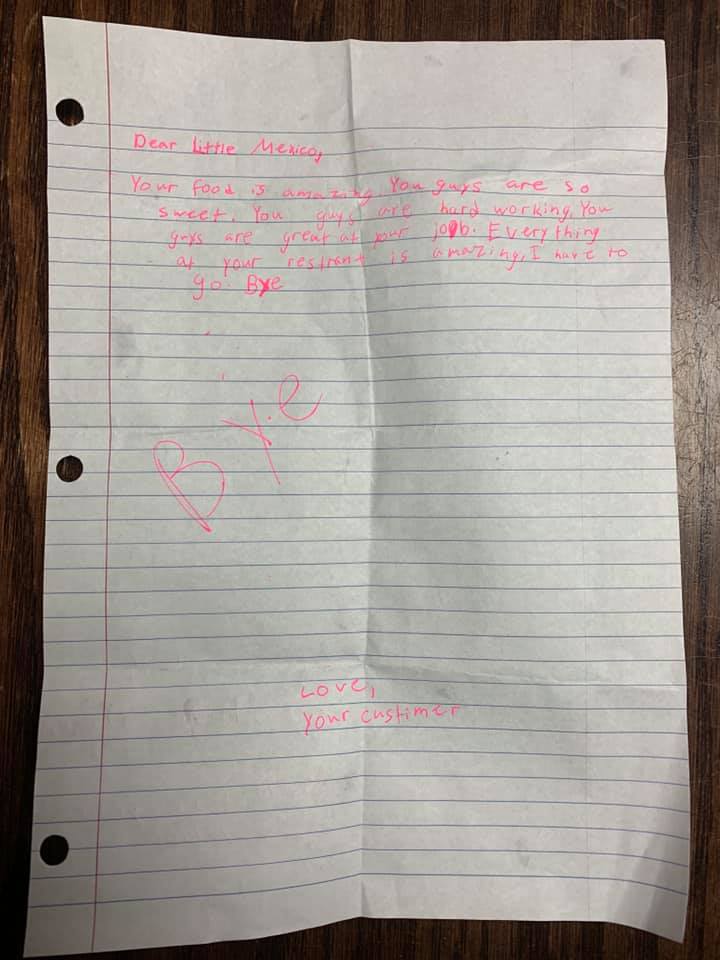 Dear Little Mexico,
Your food is amazing. You guys are so
sweet. You guys are hard working. You
guys are great at your job. Everything
at your restrant is amazing, I have to
go. Bye
Bye
Love,
Your custimer